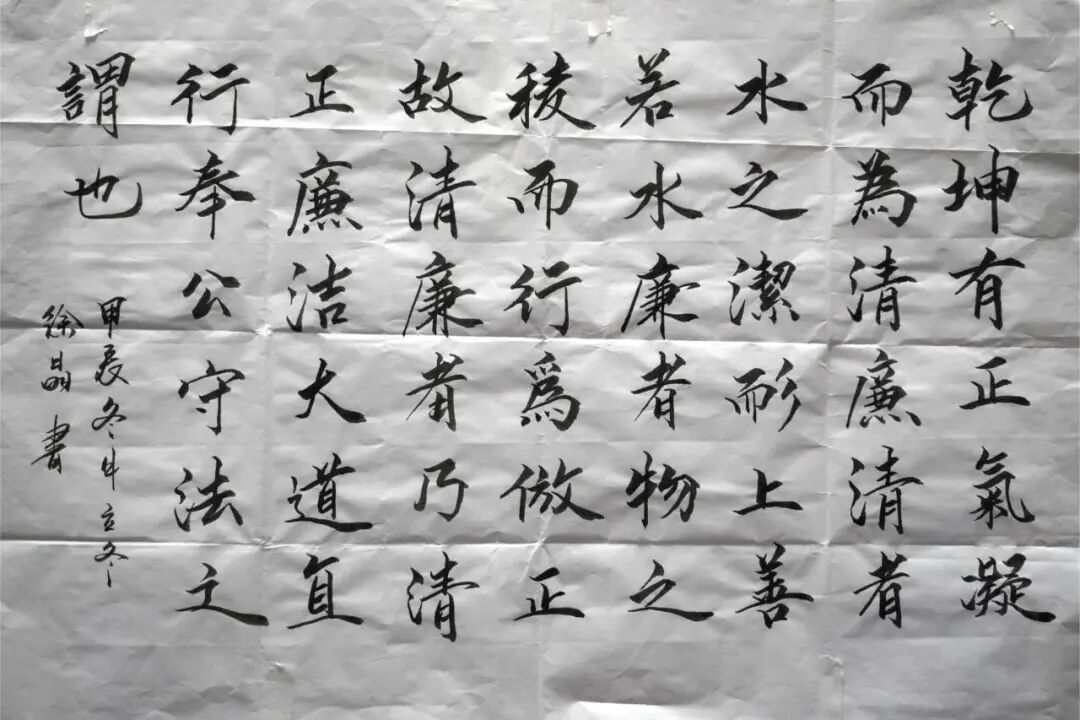 乾坤有正氣凝
而為清廉清者
水之潔耏上善
若水廉者物之
稜而行爲倣正
故清廉者乃清
正廉洁大道直
行奉公守法之
謂也
甲辰冬月立冬
徐晶書